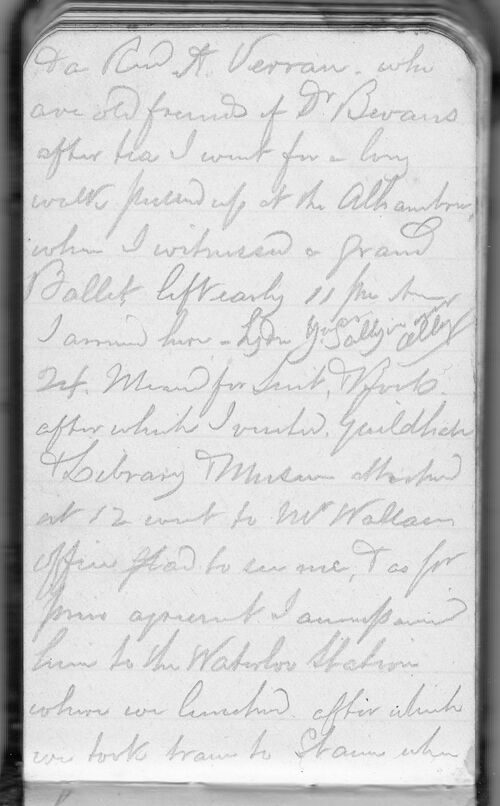 & a Revd A. Verran. who
are old friends of Dr. Bevans
after tea I went for a long
walk fetched up at the Alhambra,
when I witnessed a grand
Ballet, left early 11 pm
I arrived here
24. Measd for Suit, & Boots.
after which I visited, Guildhall
& Library & Museum attached
at 12 went to Mr Wallace
office glad to see me, & as for
agreemt I accompanied
him to the Waterloo Station
where we lunched. after which
we took train to Staines when